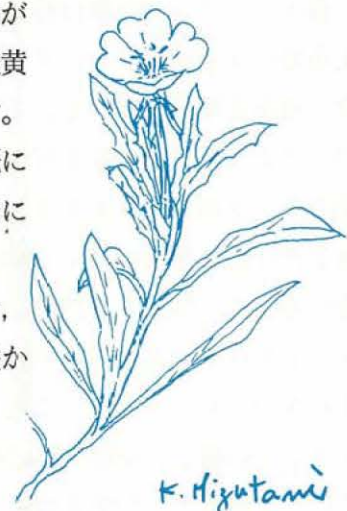 が
黄
。
に
に
,
か
K. Mizutani